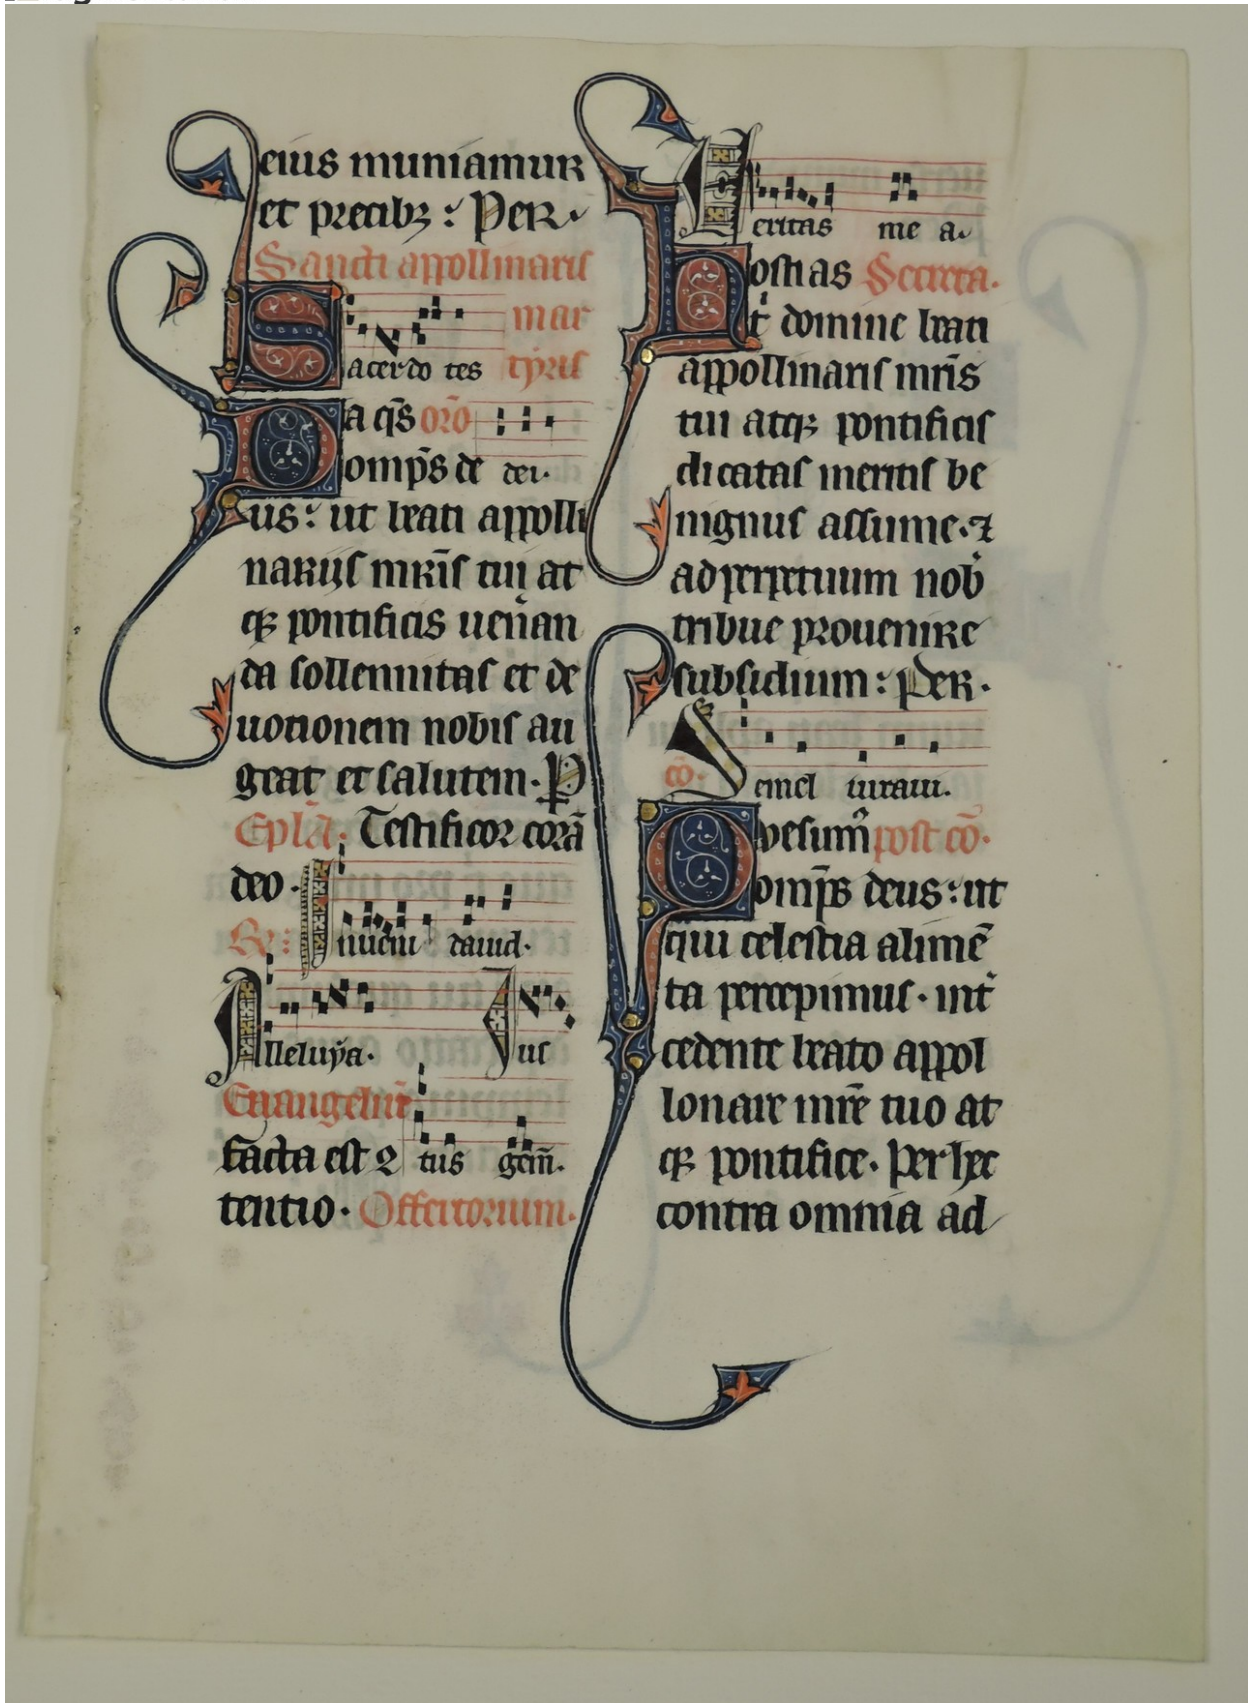 eius muniamur
et precibꝫ : Per.
Sancti appollinaris
mar
Sacerdo tes tyris
Da qs̄ orō
omp̄s de dei.
us : ut beati appolli
narijs mr̄is tui at
qꝫ pontificis uen̄an
da sollennitas et de
uotionem nobis au
geat et salutem. P
Epl̄a. Testificor corā
deo.
R̄. Inueni dauid.
Alleluya. Iur
Euangeliū
facta est 2 tus gem̄.
tentio. Offertorium.
Veritas me a.
Hostias Secreta.
t̉ domine beati
appollinaris mr̄is
tui atqꝫ pontificis
dicatas meritis be
nignus assume. ⁊
ad perpetuum nob̉
tribue prouenire
subsidium : Per.
cō. Semel iuraui.
Qvesum̉ post cō.
omp̄s deus : ut
qui celestia alimē
ta percepimus. int̉
cedente beato appol
lonare mr̄e tuo at
qꝫ pontifice. Per hec
contra omnia ad